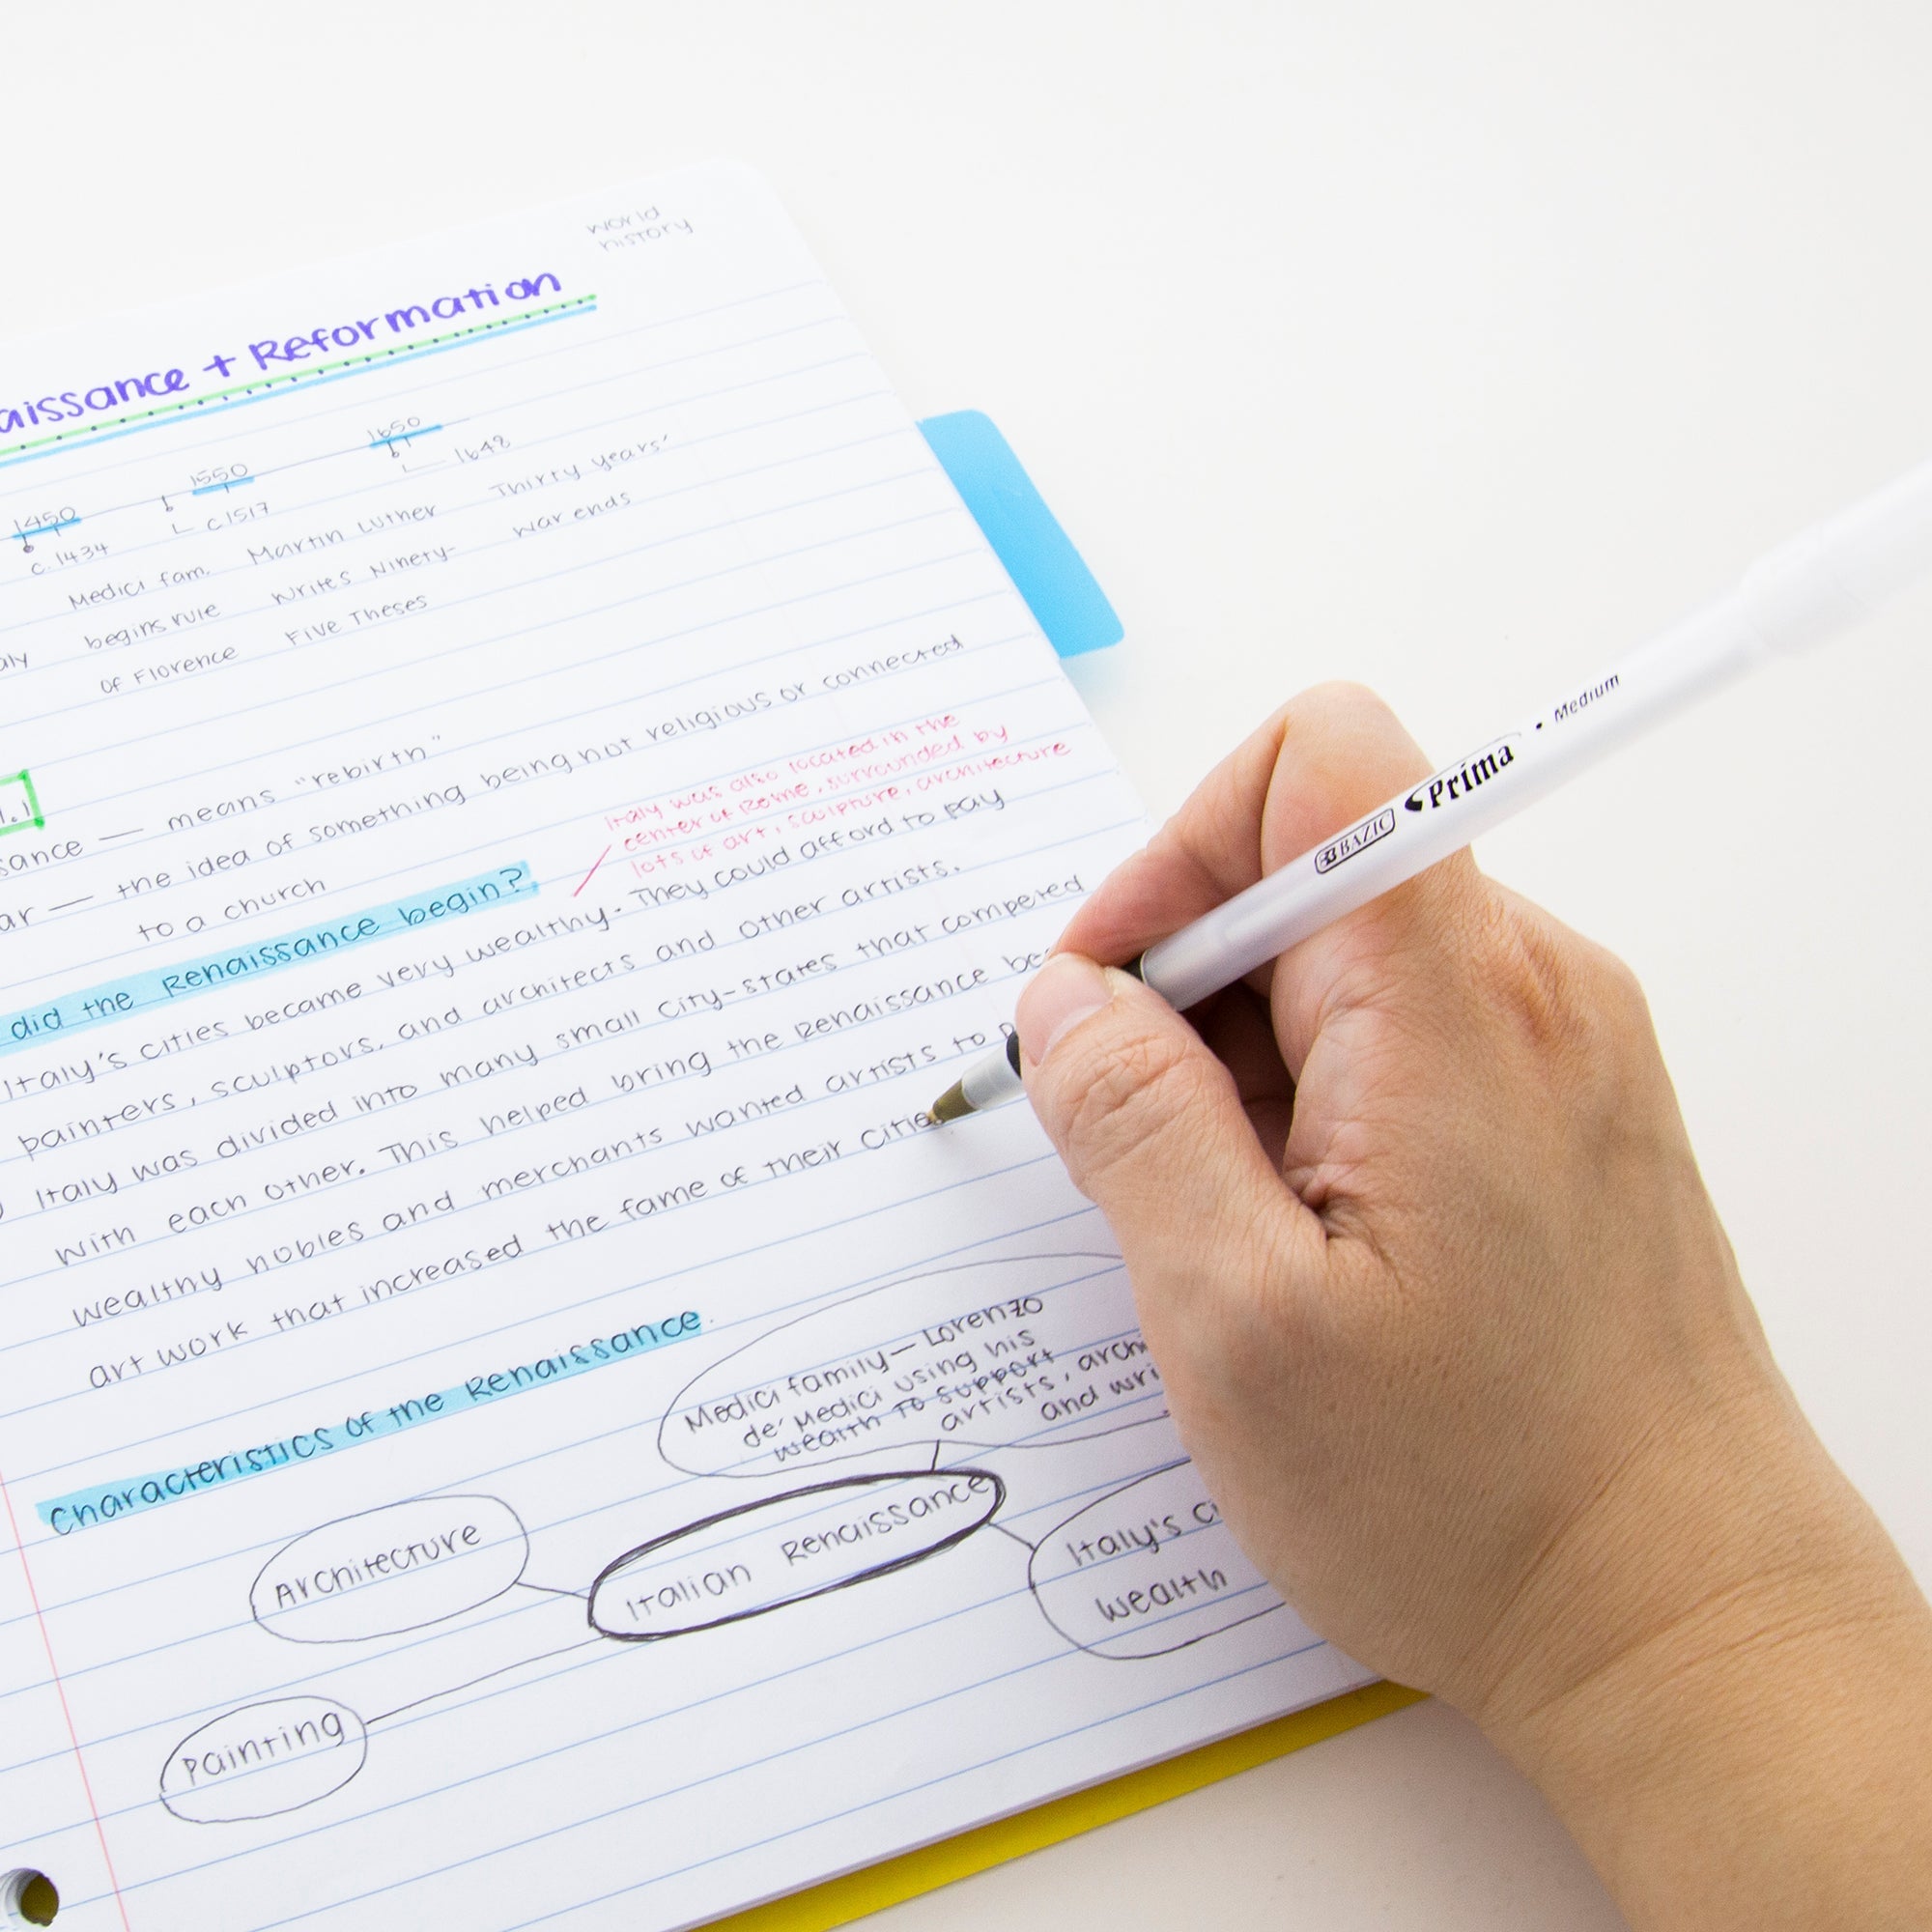 world
history
aissance + Reformation
1450 1550 1650
c. 1434 c1517 1648
Medici fam. Martin Luther Thirty Years'
aly begins rule writes Ninety- war ends
of Florence Five Theses
1.1
sance — means "rebirth"
ar — the idea of something being not religious or connected
to a church
Italy was also located in the
center of Rome, surrounded by
lots of art, sculpture, architecture
did the Renaissance begin?
Italy's cities became very wealthy. They could afford to pay
painters, sculptors, and architects and other artists.
Italy was divided into many small city-states that competed
with each other. This helped bring the Renaissance be
wealthy nobles and merchants wanted artists to p
art work that increased the fame of their citie
Characteristics of the Renaissance
Medici family — Lorenzo
de' Medici using his
wealth to support
artists, archi
and wri
Architecture
Italian Renaissance
Italy's ci
wealth
Painting
BAZIC Prima • Medium